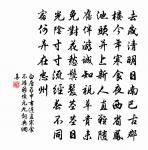 去歲清明日南巴古郡
樓今年寒食夜西省鳳
池頭并上新人直難隨
舊伴遊誠知視草貴未
免對花愁鬢髮莖莖白
光陰寸寸流經春不同
宿何異在忠州
白居易中書連直寒食
不歸因懷元九詞典網
集